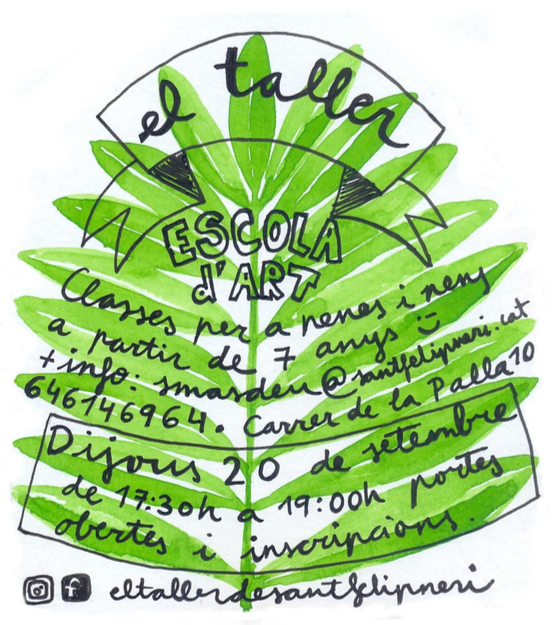 el taller
ESCOLA
d'ART
Classes per a nenes i nens
a partir de 7 anys
+info: smasdeu@santfelipneri.cat
646146964. Carrer de la Palla 10
Dijous 20 de setembre
de 17:30h a 19:00h portes
obertes i inscripcions.
eltallerdesantfelipneri